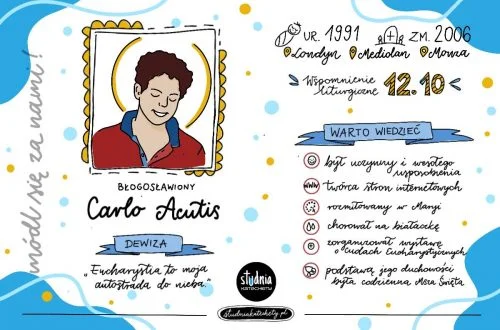 módl się za nami!
BŁOGOSŁAWIONY
Carlo Acutis
DEWIZA
„Eucharystia to moja
autostrada do nieba."
UR. 1991
ZM. 2006
Londyn Mediolan Monza
Wspomnienie
liturgiczne 12.10
WARTO WIEDZIEĆ
był uczynny i wesołego
usposobienia
www twórca stron internetowych
rozmiłowany w Maryi
chorował na białaczkę
zorganizował wystawę
o Cudach Eucharystycznych
podstawą jego duchowości
była codzienna Msza Święta
studnia
KATECHETY
studniakatechety.pl